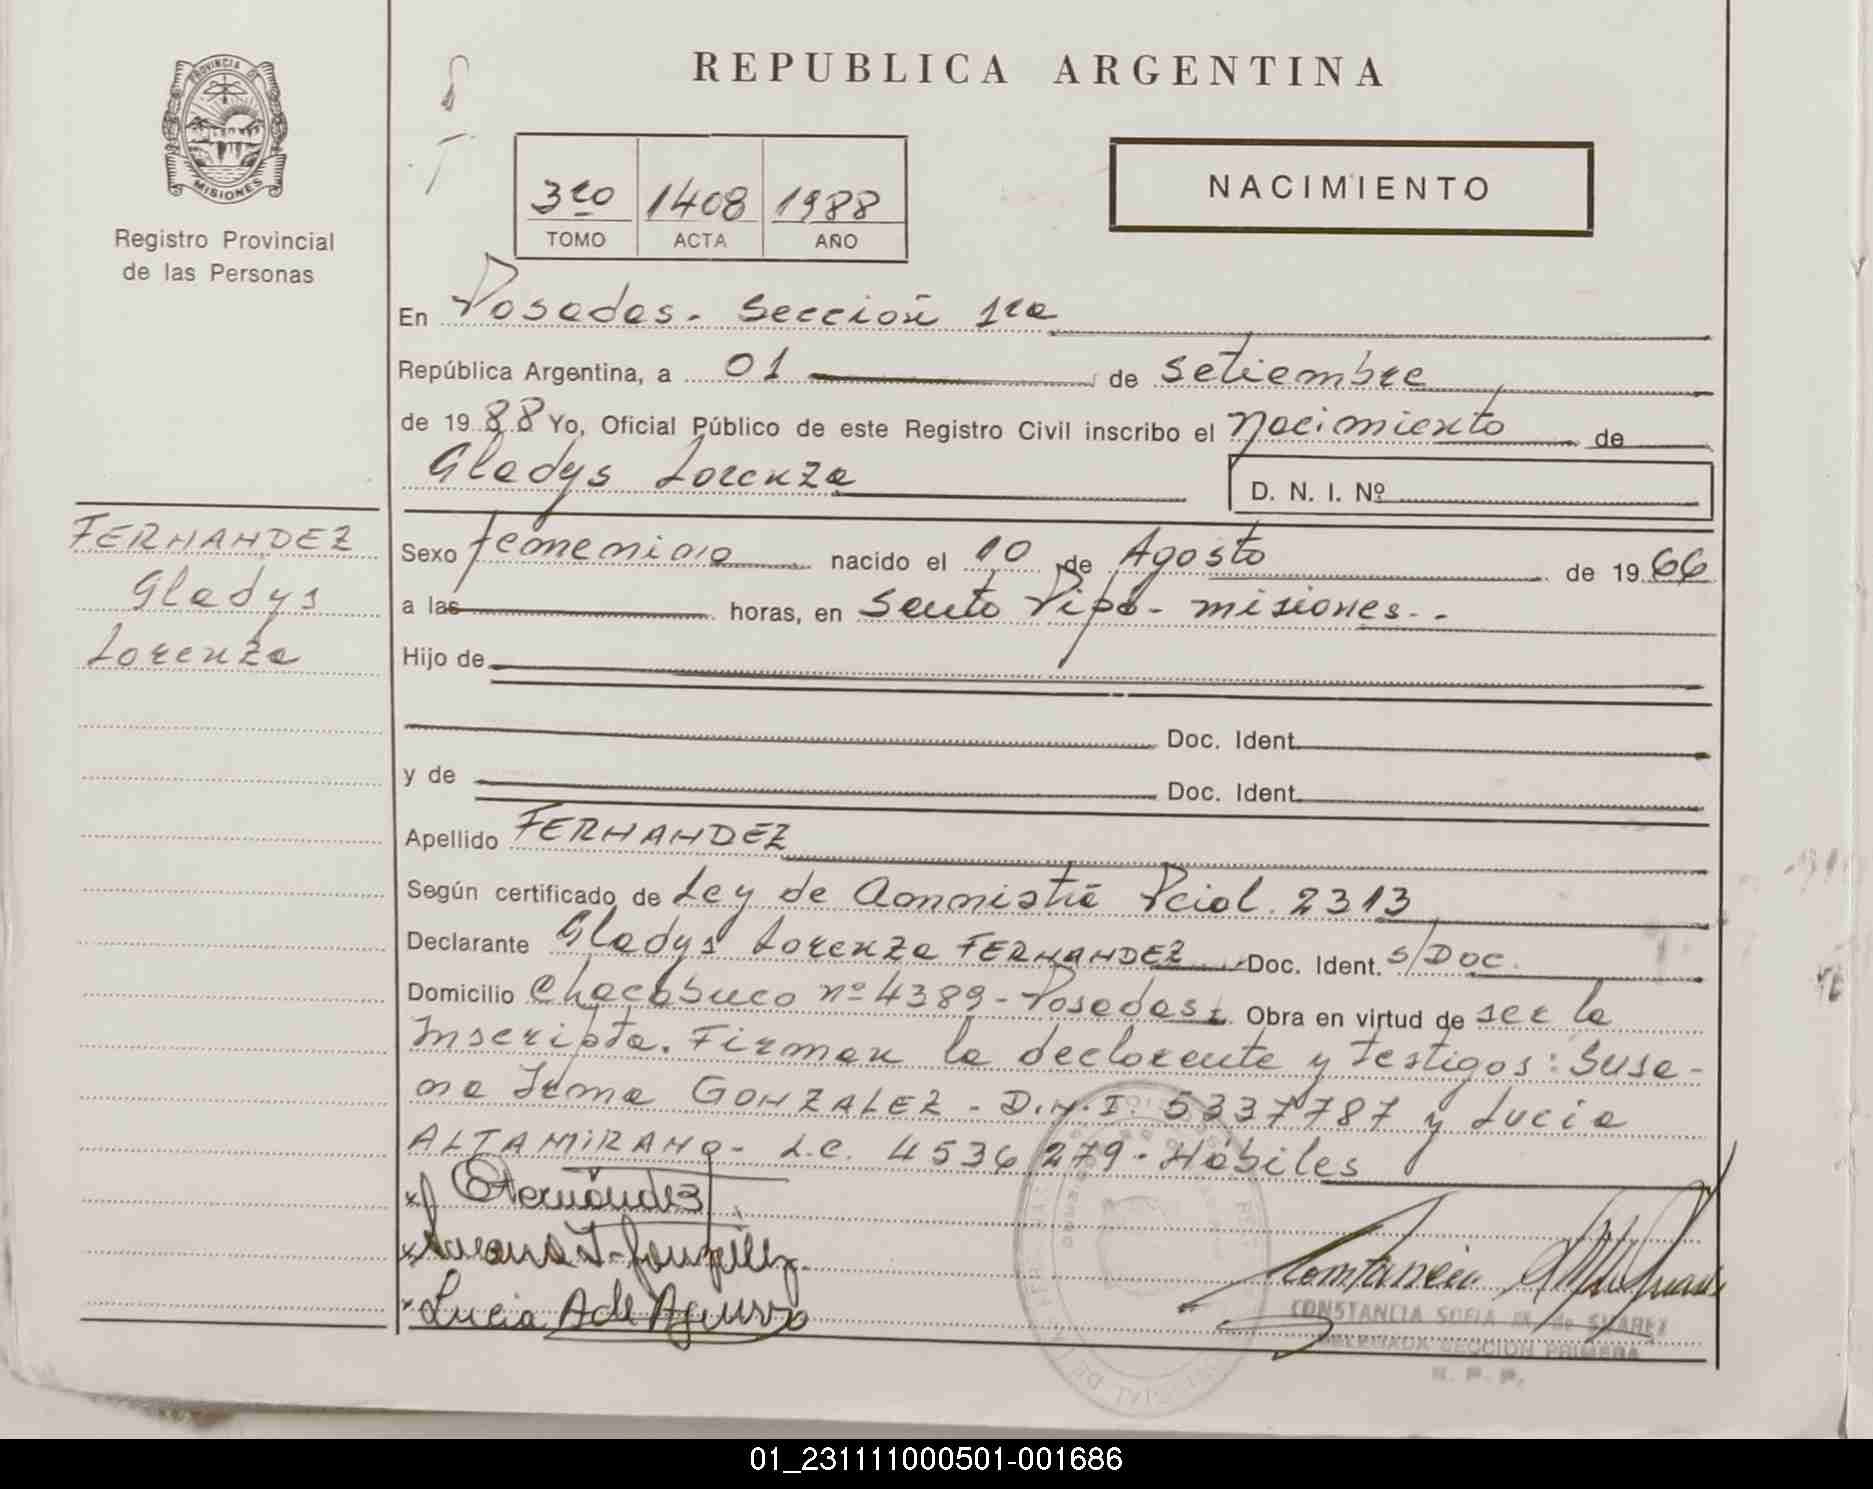 PROVINCIA DE
MISIONES
Registro Provincial
de las Personas
REPUBLICA ARGENTINA
3ro 1408 1988
TOMO ACTA AÑO
NACIMIENTO
En Posadas - Sección 1ra
República Argentina, a 01 de setiembre
de 1988 Yo, Oficial Público de este Registro Civil inscribo el nacimiento de
Gladys Lorenza
D. N. I. Nº
FERNANDEZ
Gladys
Lorenza
Sexo femenino nacido el 10 de Agosto de 1966
a las horas, en Santo Pipó - misiones - -
Hijo de
Doc. Ident.
y de Doc. Ident.
Apellido FERNANDEZ
Según certificado de Ley de Amnistía Pcial. 2313
Declarante Gladys Lorenza FERNANDEZ Doc. Ident. s/Doc.
Domicilio Chacabuco nº 4389 - Posadas. Obra en virtud de ser la
Inscripta. Firman la declarante y Testigos: Susa-
na Irma GONZALEZ - D.N.I. 5337787 y Lucia
ALTAMIRANO - L.C. 4536279 - Hábiles
Fernández
Susana I. González
Lucia
Constancia
CONSTANCIA SOFIA M. de SUAREZ
DELEGADA SECCION PRIMERA
R. P. P.
01_231111000501-001686